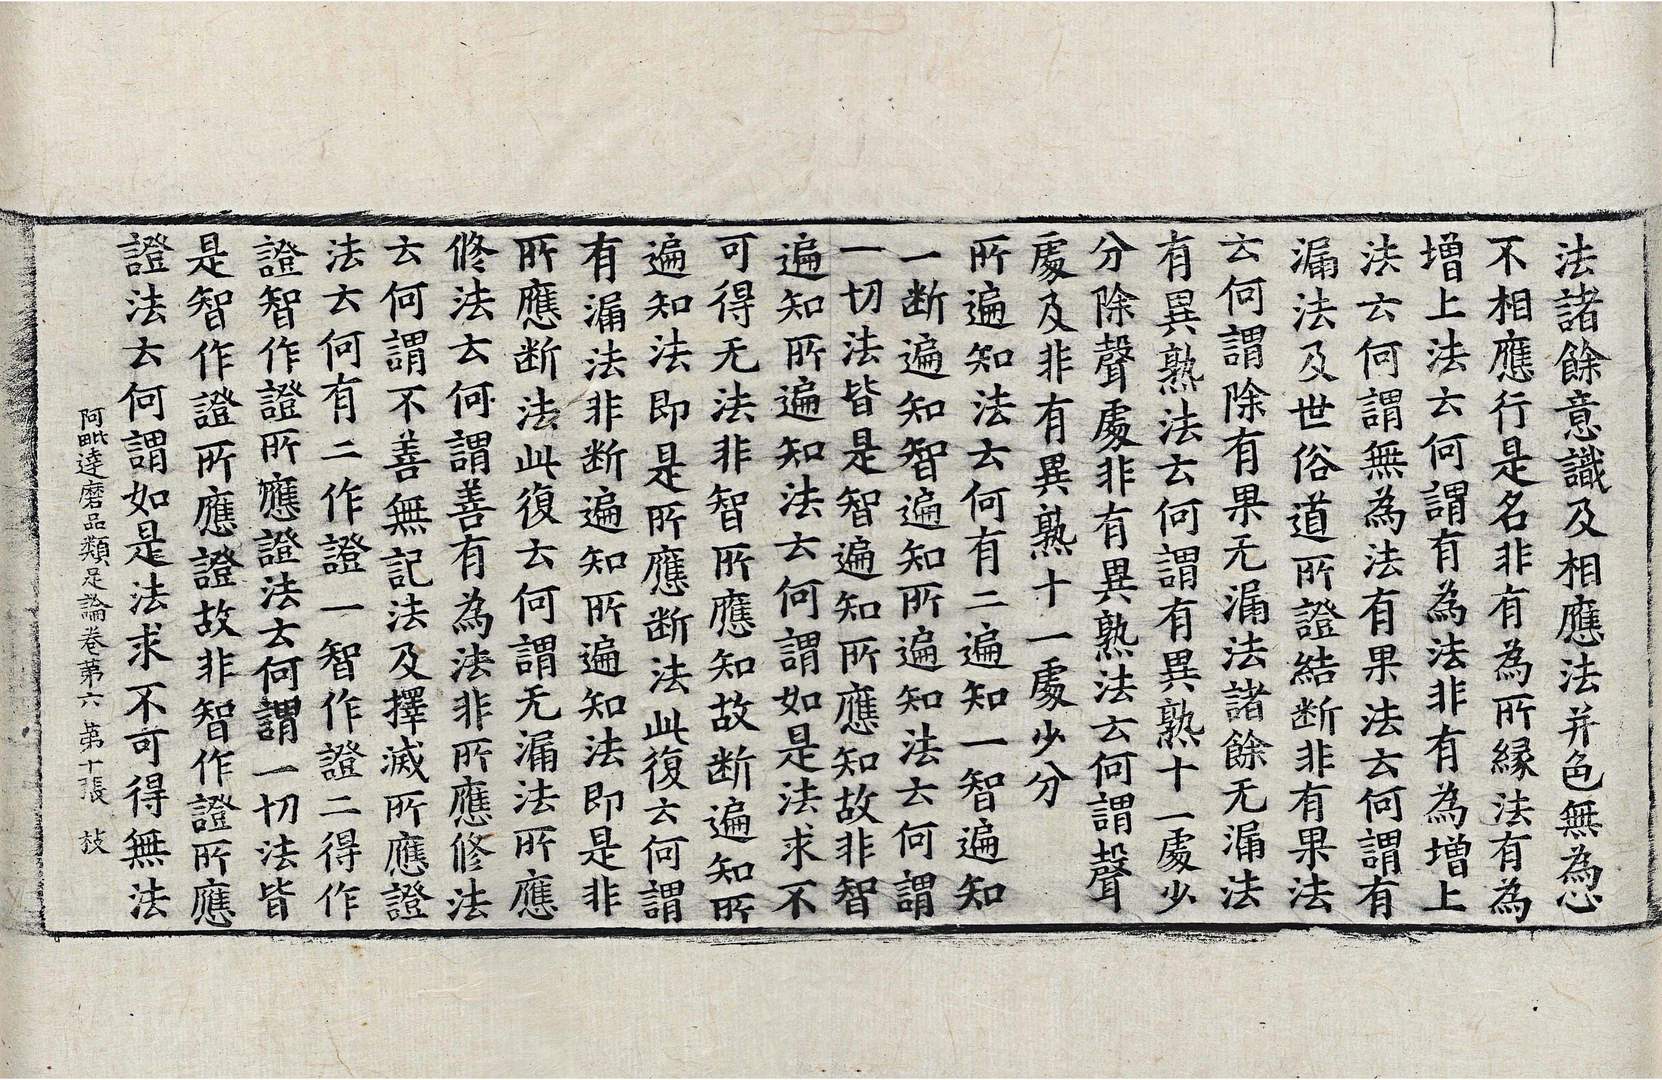 法諸餘意識及相應法并色無為心
不相應行是名非有為所縁法有為
增上法云何謂有為法非有為增上
法云何謂無為法有果法云何謂有
漏法及世俗道所證結断非有果法
云何謂除有果无漏法諸餘无漏法
有異熟法云何謂有異熟十一處少
分除聲處非有異熟法云何謂聲
處及非有異熟十一處少分
所遍知法云何有二遍知一智遍知
二断遍知智遍知所遍知法云何謂
一切法皆是智遍知所應知故非智
遍知所遍知法云何謂如是法求不
可得无法非智所應知故断遍知所
遍知法即是所應断法此復云何謂
有漏法非断遍知所遍知法即是非
所應断法此復云何謂无漏法所應
修法云何謂善有為法非所應修法
云何謂不善無記法及擇滅所應證
法云何有二作證一智作證二得作
證智作證所應證法云何謂一切法皆
是智作證所應證故非智作證所應
證法云何謂如是法求不可得無法
阿毗達磨品類足論卷苐六 苐十張 㪯